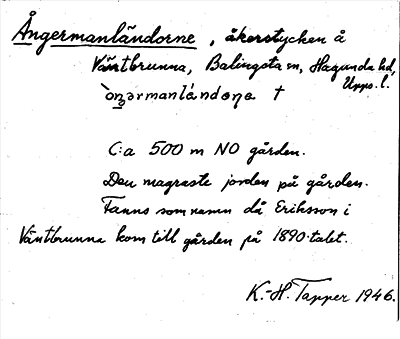 Ångermanländorne, åkerstycken å
Väntbrunna, Balingsta sn, Hagunda hd,
Upps. l.
òŋərmanlándoɳa †
C:a 500 m NO gården.
Den magraste jorden på gården.
Fanns som namn då Eriksson i
Väntbrunna kom till gården på 1890-talet.
K.-H. Tapper 1946.